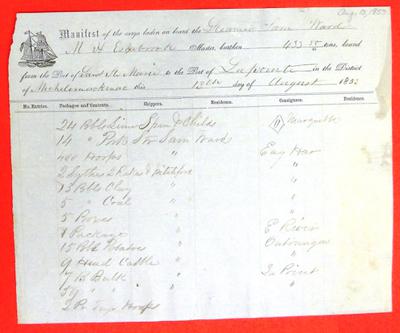 Aug. 13, 1853
Manifest of the cargo laden on board the Steamer Sam Ward
M H Master, burthen 433 tons, bound
from the Port of Sault Ste Marie to the Port of Lapointe in the District
of Michilimackinac this day of August 185
No. Entries. Packages and Contents. Shippers. Residence. Consignees. Residence.
24 Bbls Lime Spau & Childs Marquette
14 " Pork Str Sam Ward "
400 Hoops " Eag Har
2 Sythes 2 Rakes & Pitchfork " "
13 Bbls Clay " "
5 " Coal " "
5 Boxes " "
1 Package " E River
15 Bbls Potatoes " Ontonagon
9 Head Cattle " "
7 B Bulk " La Point
59 " " "
2 Hoops